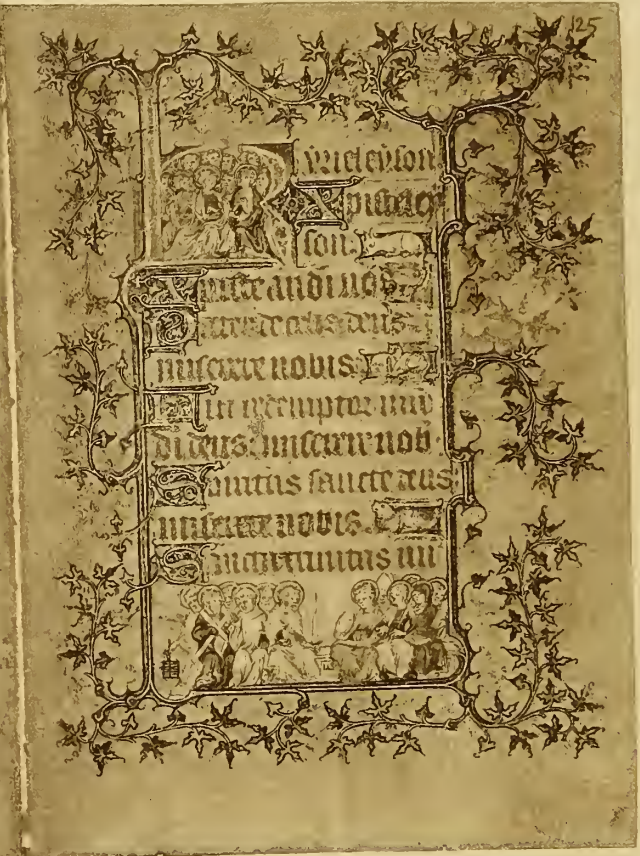 125
Kyrieleyson
Xpisteley
son.
Xpiste audi nos
Pater de celis deus
miserere nobis
Fili redemptor mun
di deus. miserere nob
Spiritus sancte deus
miserere nobis.
Sancta trinitas un